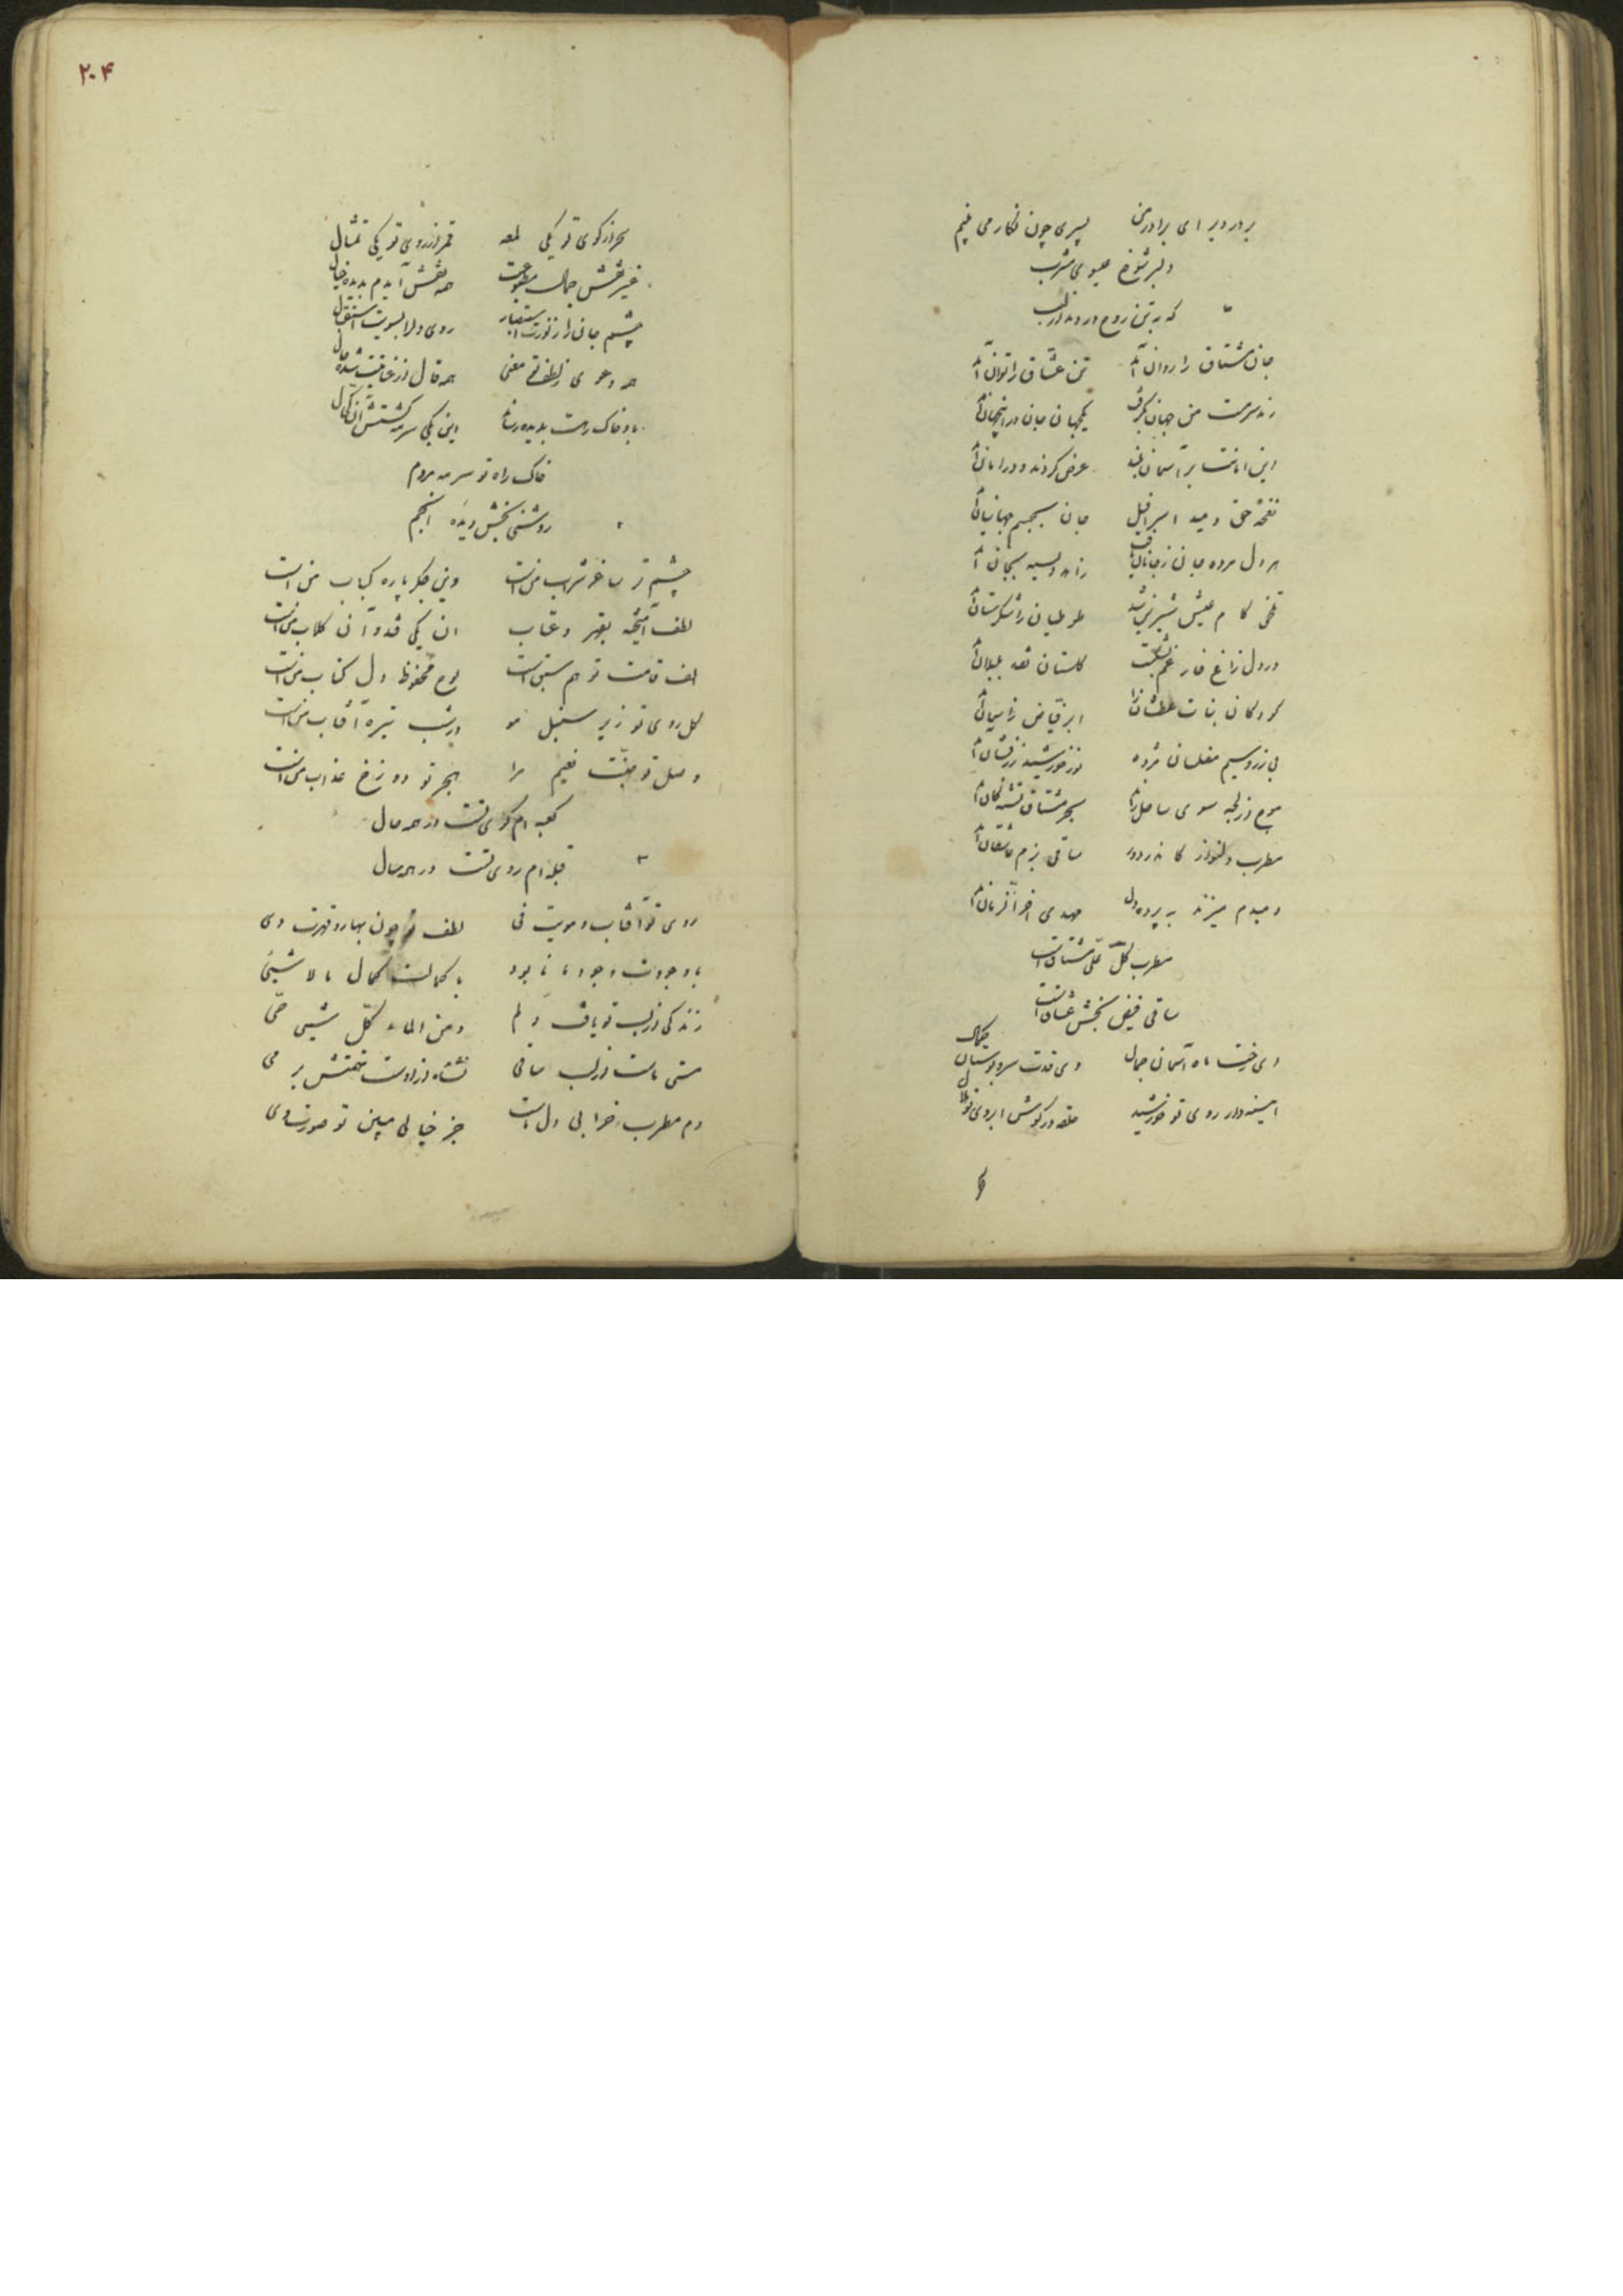 بر در دیر ای برادر من پسری چون نگار می بینم
دلبر شوخ عیسوی مشرب
که به تن روح در دمد از لب
جان مشتاق را روان آمد تن عشاق را توان آمد
رند سرمست من جهان بگرفت یکجهان جان در اینجهان آمد
این امانت بر آسمان بلند عرض کردند و در امان آمد
نفخه حق دمید اسرافیل جان بجسم جهانیان آمد
هر دل مرده جان ز جانان یافت زانکه
تلخی کام عیش شیرین شد طوطیان را شکرستان آمد
در دل زاغ خار غم بشکست گلستان بلبلان آمد
کودکان نبات عطشان را ابر فیاض
بی زر و سیم مفلسان مژده نور خورشید زرفشان آمد
موج از لجه سوی ساحل راند بحر مشتاق تشنگان آمد
مطرب دلنواز ساقی بزم عاشقان آمد
دمبدم میزند به پرده دل مهدی آخر الزمان آمد
مطرب کل علی مشتاق است
ساقی فیض بخش عشاق است
ای رخت ماه آسمان جمال وی قدت سرو بوستان کمال
اینه دار روی تو خورشید حلقه در گوش ابروی تو هلال
۲۰۴
سحر از کوی تو یکی لمعه قمر از روی تو یکی تمثال
غیر نقش جمال همه نقش آیدم بدیده خیال
چشم جان را ز نورت روی دل را بسویت استقبال
همه دعوی ز معنی همه قال از حال
باد خاک رهت بدیده رساند این یکی سرمه گشتش آن کحال
خاک راه تو سرمه مردم
روشنی بخش دیده انجم
چشم تر ساغر شراب من است وین جگر پاره کباب من است
لطف آمیخته بقهر و عتاب ان یکی قند و آن گلاب من است
الف قامت تو هم سبق است لوح محفوظ دل کتاب من است
گل روی تو زیر سنبل مو در شب تیره آفتاب من است
وصل تو جنت نعیم مرا هجر تو دوزخ عذاب من است
کعبه ام کوی تست در همه حال
قبله ام روی تست در همه سال
روی تو آفتاب و مویت فی لطف تو چون بهار و قهرت دی
با وجودت وجود ما نابود با کمالت کمال ما لا شیئی
زندگی از لب تو یافت دلم و من الماء کل شیئی حی
مستی ماست از لب ساقی نشئاه از اوست تهمتش بر می
دم مطرب خرابی دل است جز خیالی مبین تو صورت وی